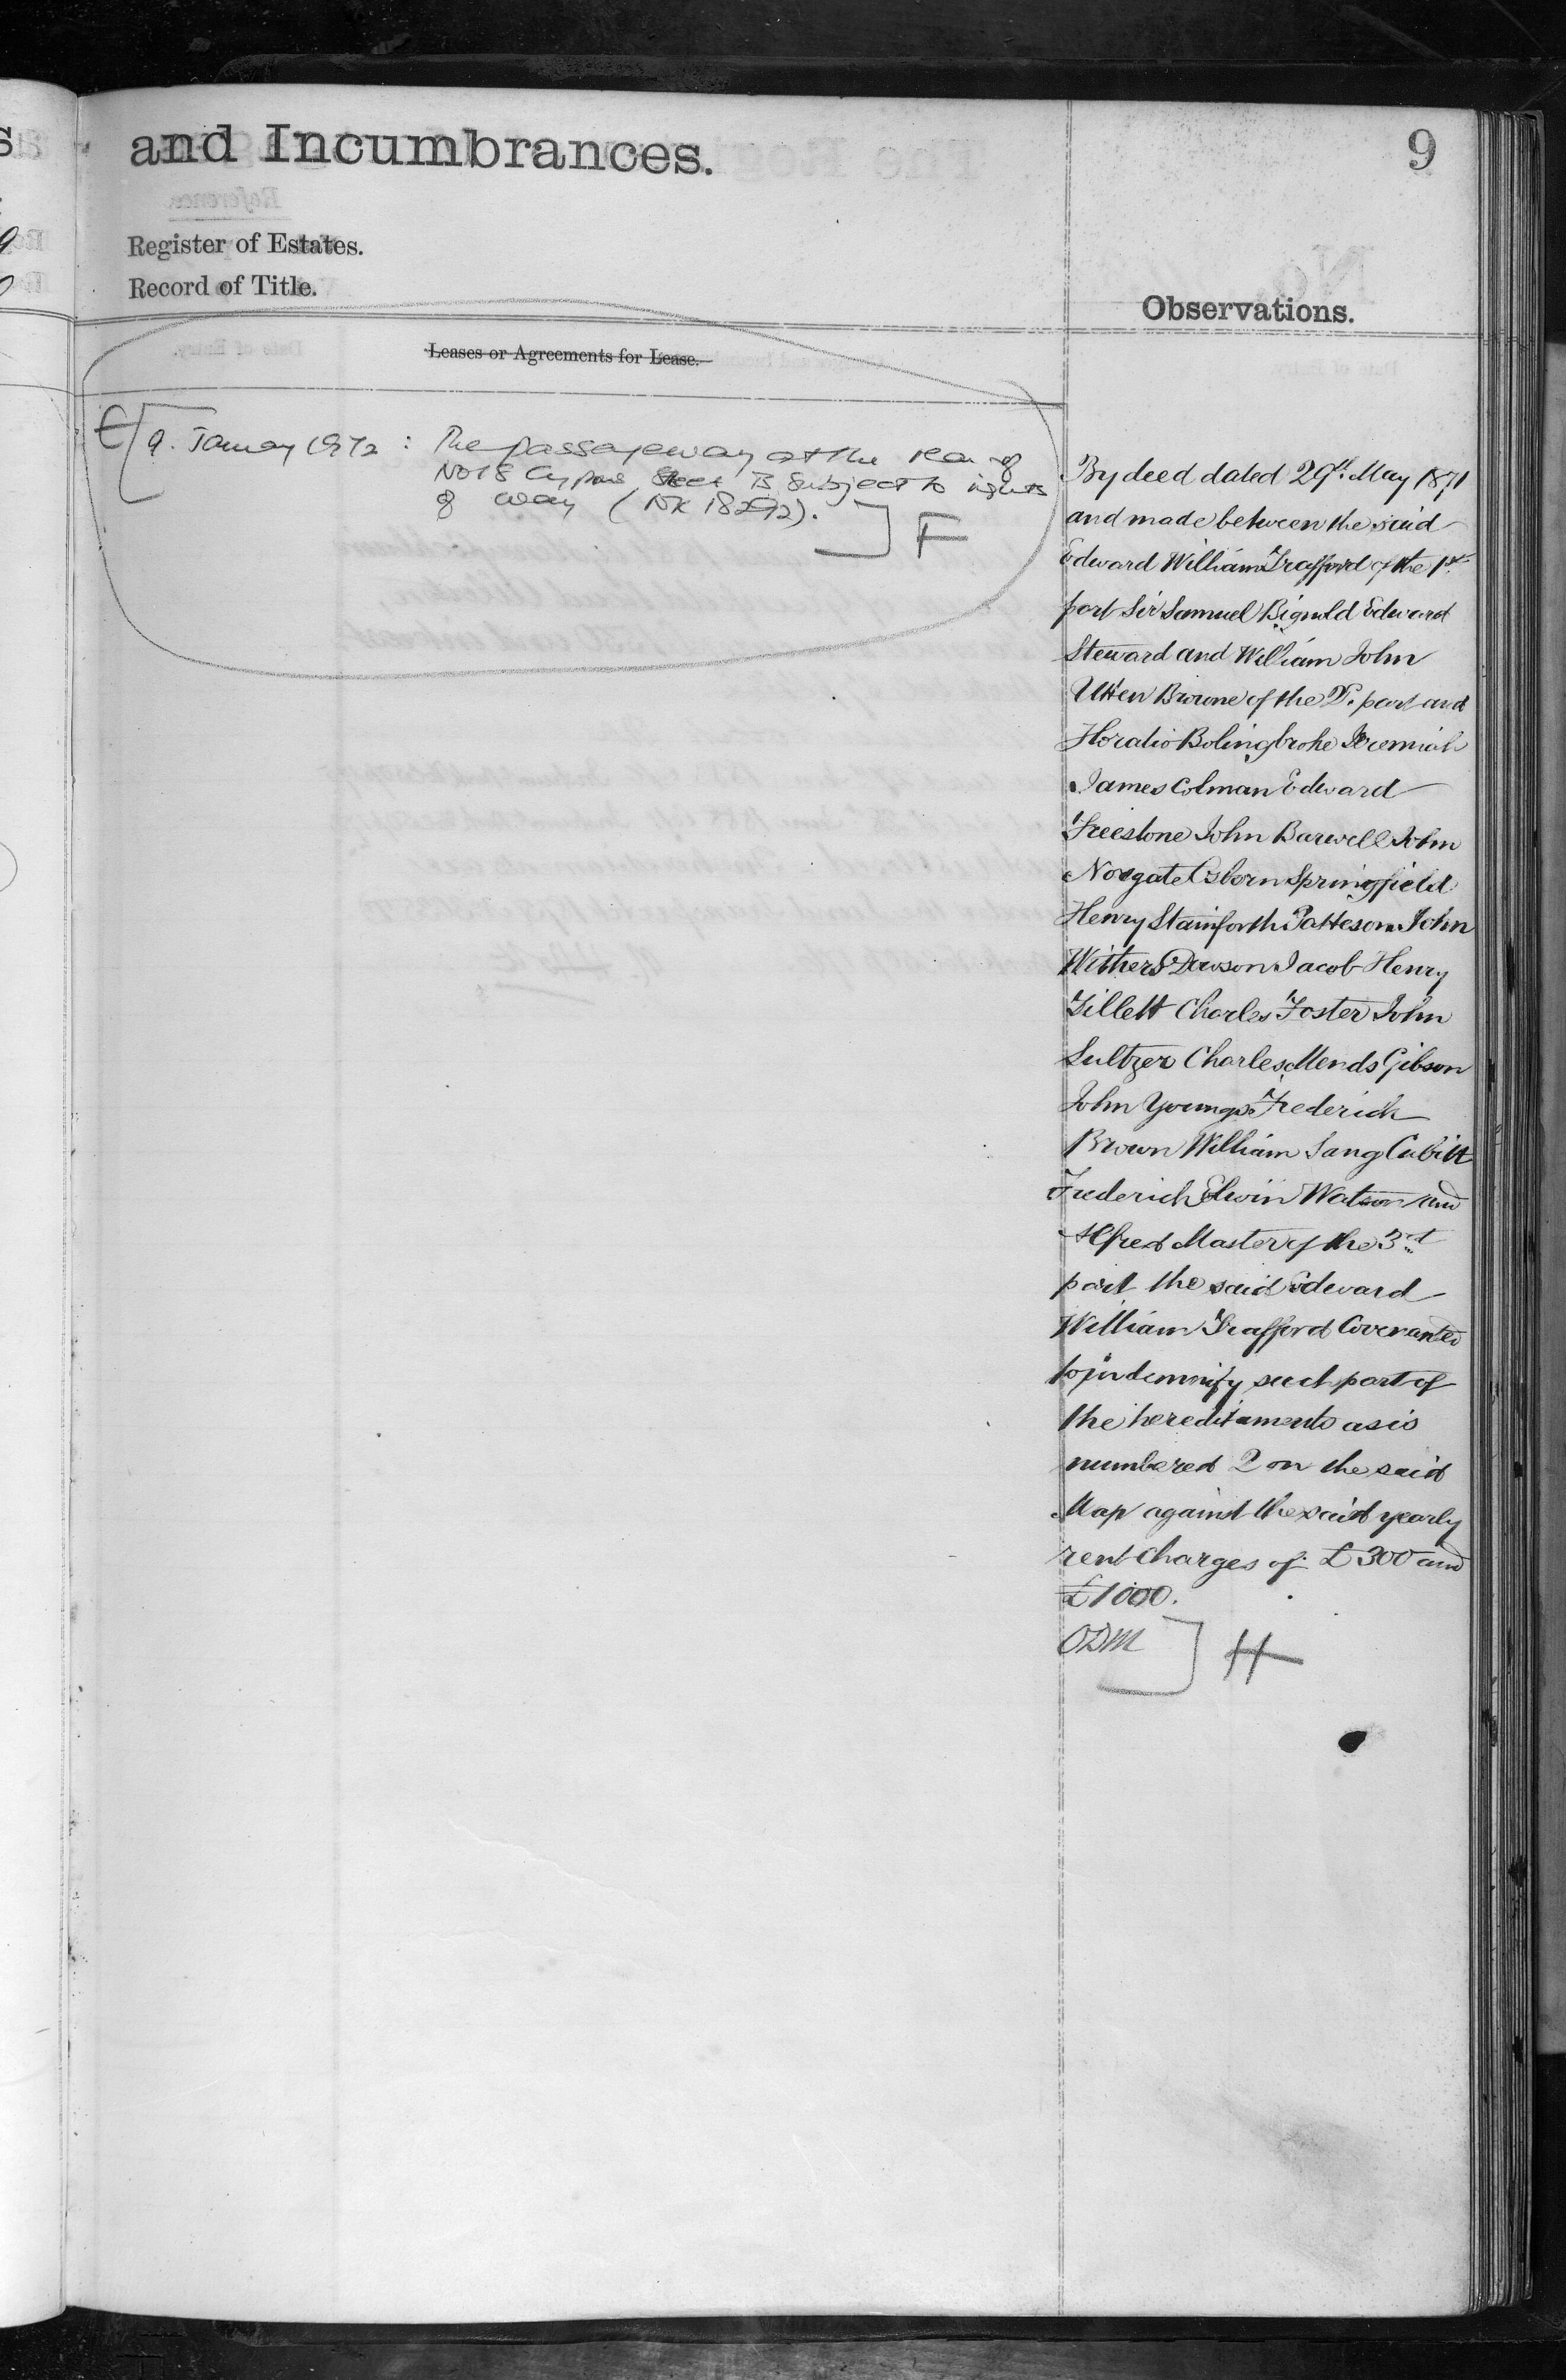 and Incumbrances.
9
Register of Estates.
Record of Title.
Observations.
Leases or Agreements for Lease.
9. January 1972 : The passageway at the rear of
No 18 Cyprus Street is subject to rights
of way (NK 18292).
F
By deed dated 29th May 1871
and made between the said
Edward William Trafford of the 1st
part Sir Samuel Bignold Edward
Steward and William John
Utten Browne of the 2d. part and
Horatio Bolingbroke Jeremiah
James Colman Edward
Freestone John Barwell John
Norgate Osborn Springfield
Henry Stainforth Patteson John
Withers Dowson Jacob Henry
Tillett Charles Foster John
Sultzer Charles Mends Gibson
John Youngs Frederick
Brown William Lang Cubitt
Frederick Elwin Watson and
Alfred Master of the 3rd
part the said Edward
William Trafford Covenanted
to indemnify such part of
the hereditaments as is
numbered 2 on the said
Map against the said yearly
rent charges of £300 and
£1000.
ODM
H